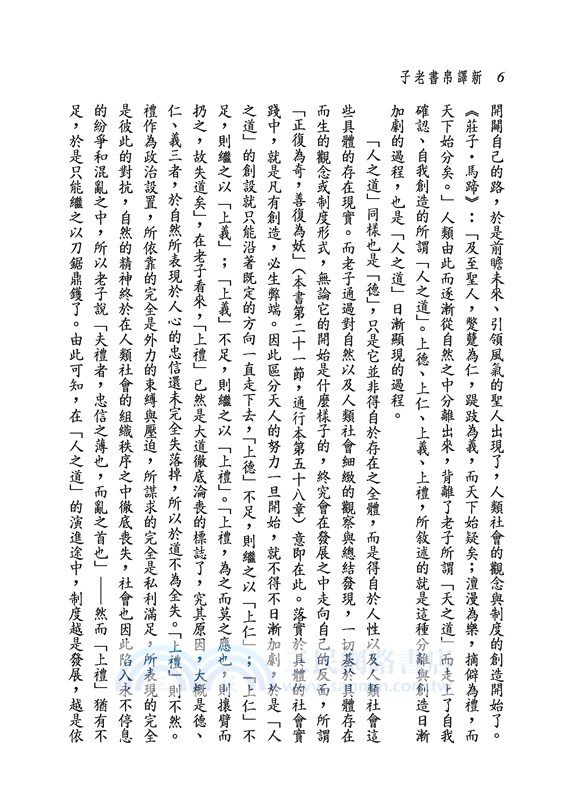 6 新譯帛書老子
開闢自己的路，於是前瞻未來、引領風氣的聖人出現了，人類社會的觀念與制度的創造開始了。
《莊子・馬蹄》：「及至聖人，蹩躠為仁，踶跂為義，而天下始疑矣；澶漫為樂，摘僻為禮，而
天下始分矣。」人類由此而逐漸從自然之中分離出來，背離了老子所謂「天之道」而走上了自我
確認、自我創造的所謂「人之道」。上德、上仁、上義、上禮，所敘述的就是這種分離與創造日漸
加劇的過程，也是「人之道」日漸顯現的過程。
「人之道」同樣也是「德」，只是它並非得自於存在之全體，而是得自於人性以及人類社會這
些具體的存在現實。而老子通過對自然以及人類社會細緻的觀察與總結發現，一切基於具體存在
而生的觀念或制度形式，無論它的開始是什麼樣子的，終究會在發展之中走向自己的反面，所謂
「正復為奇，善復為妖」（本書第二十一節，通行本第五十八章）意即在此。落實於具體的社會實
踐中，就是凡有創造，必生弊端。因此區分天人的努力一旦開始，就不得不日漸加劇，於是「人
之道」的創設就只能沿著既定的方向一直走下去，「上德」不足，則繼之以「上仁」；「上仁」不
足，則繼之以「上義」；「上義」不足，則繼之以「上禮」。「上禮，為之而莫之應也，則攘臂而
扔之，故失道矣」，在老子看來，「上禮」已然是大道徹底淪喪的標誌了，究其原因，大概是德、
仁、義三者，於自然所表現於人心的忠信還未完全失落掉，所以於道不為全失。「上禮」則不然。
禮作為政治設置，所依靠的完全是外力的束縛與壓迫，所謀求的完全是私利滿足，所表現的完全
是彼此的對抗，自然的精神終於在人類社會的組織秩序之中徹底喪失，社會也因此陷入永不停息
的紛爭和混亂之中，所以老子說「夫禮者，忠信之薄也，而亂之首也」——然而「上禮」猶有不
足，於是只能繼之以刀鋸鼎鑊了。由此可知，在「人之道」的演進途中，制度越是發展，越是依